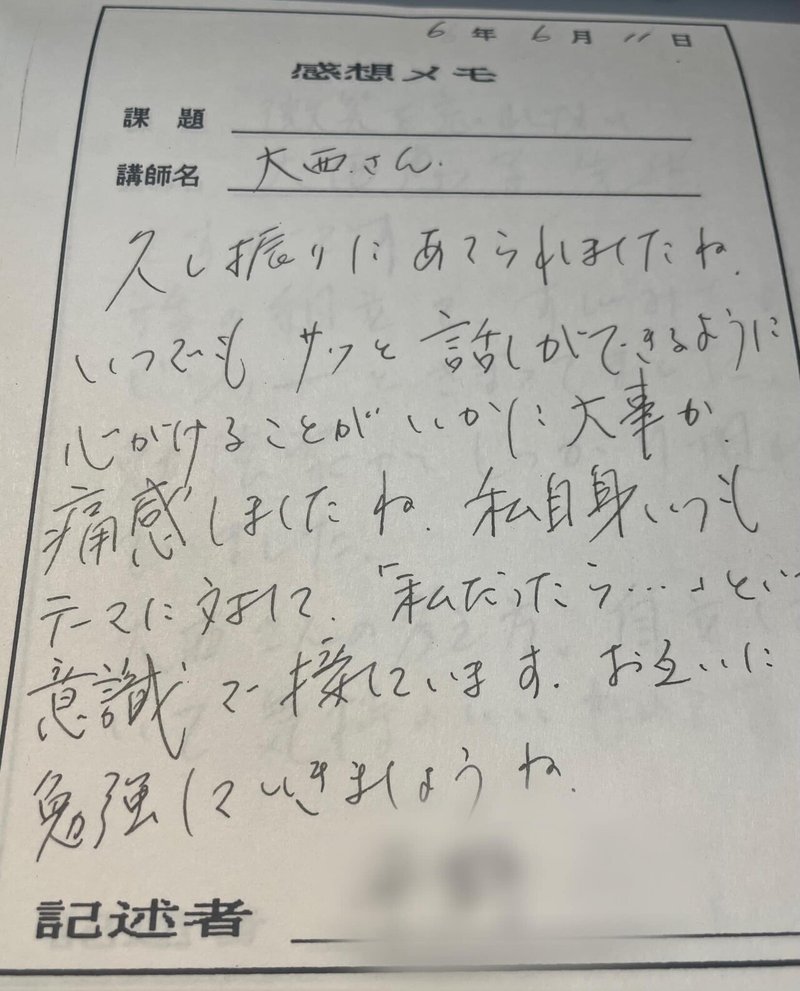 6年6月11日
感想メモ
課題
講師名 大西さん.
久し振りにあてられましたね.
いつでもサッと話しができるように
心がけることがいかに大事か.
痛感しましたね.私自身いつも
テーマに対して.「私だったら…」とい
意識で接しています.お互いに
勉強していきましょうね.
記述者